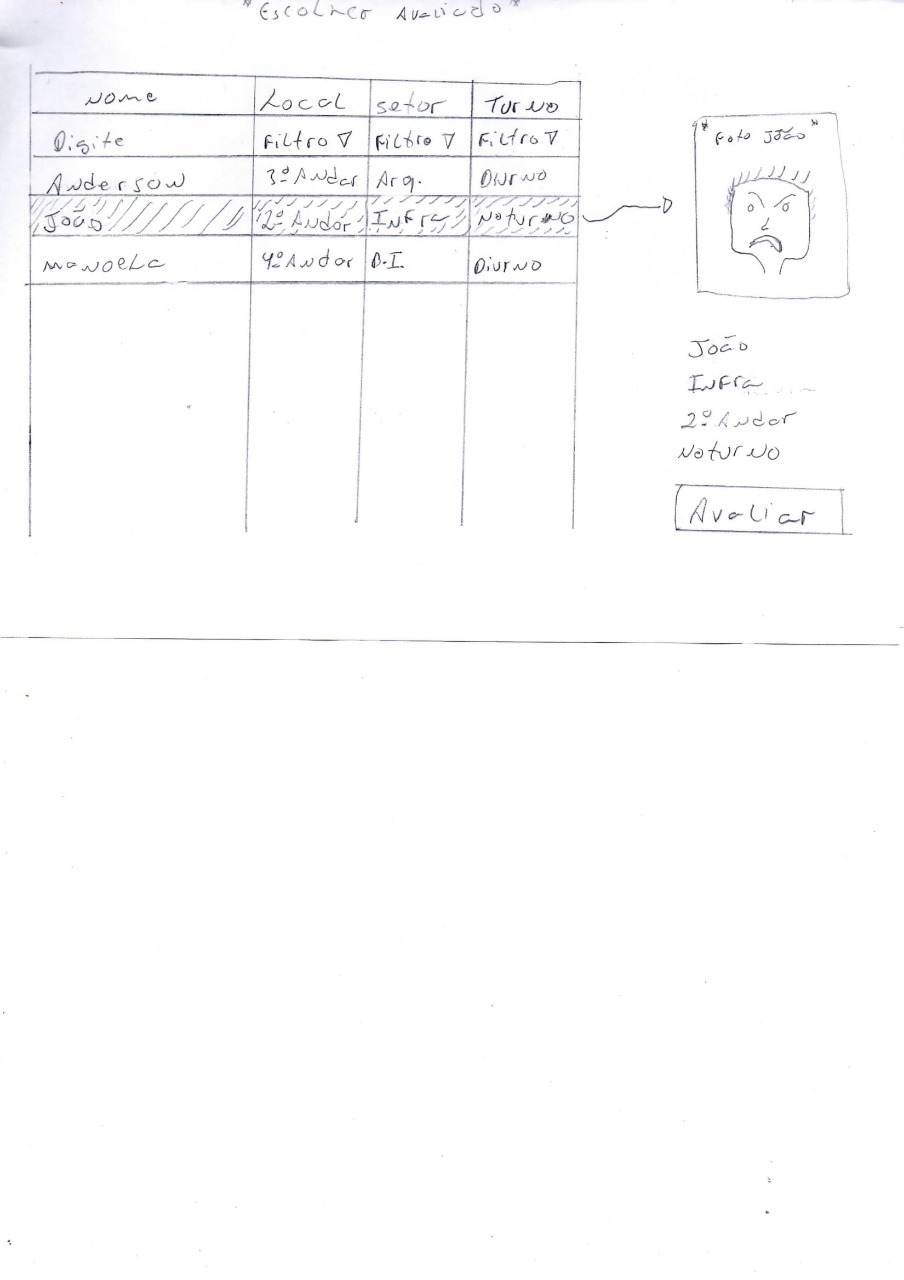 *Escolher Avaliado*
Nome Local setor Turno
Digite Filtro ▽ Filtro ▽ Filtro ▽
Anderson 3º Andar Arq. Diurno
João 2º Andar Infra Noturno
Manoela 4º Andar B.I. Diurno
*Foto João*
João
Infra
2º Andar
Noturno
Avaliar